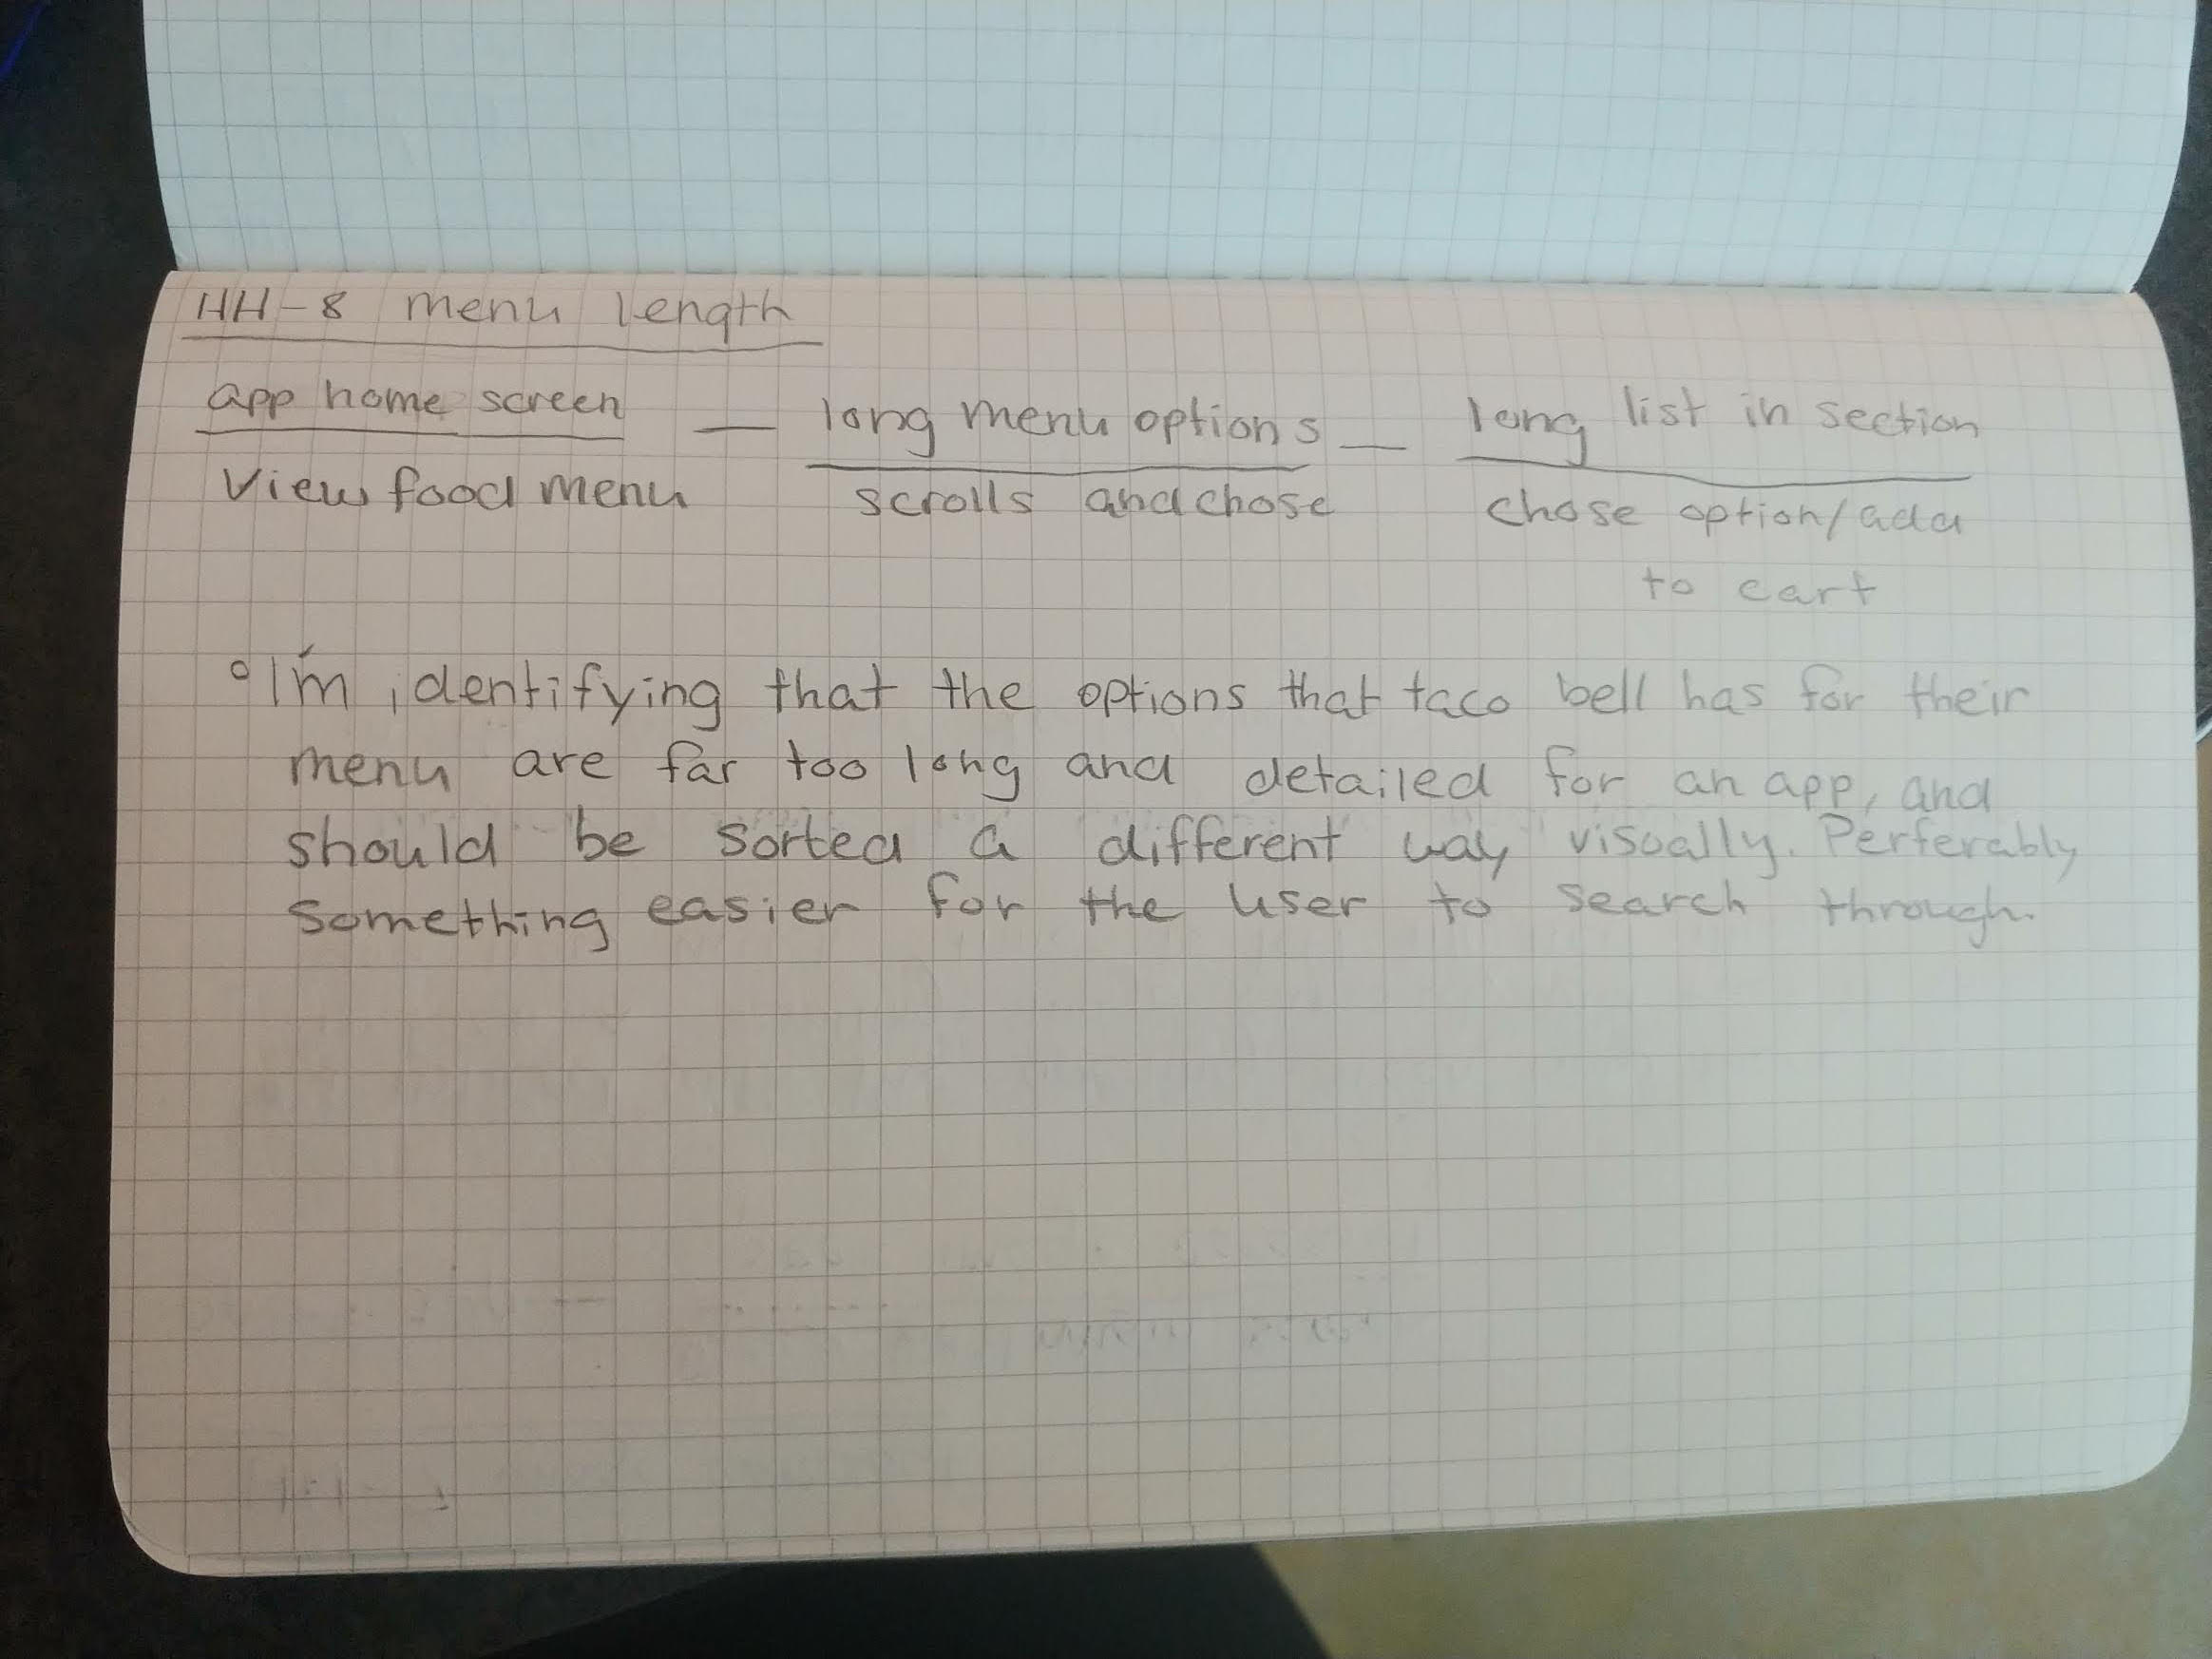 HH-8 menu length
app home screen — long menu options — long list in section
View food menu scrolls and chose chose option/add
to cart
°I'm identifying that the options that taco bell has for their
menu are far too long and detailed for an app, and
should be sorted a different way visually. Perferably
Something easier for the user to search through.